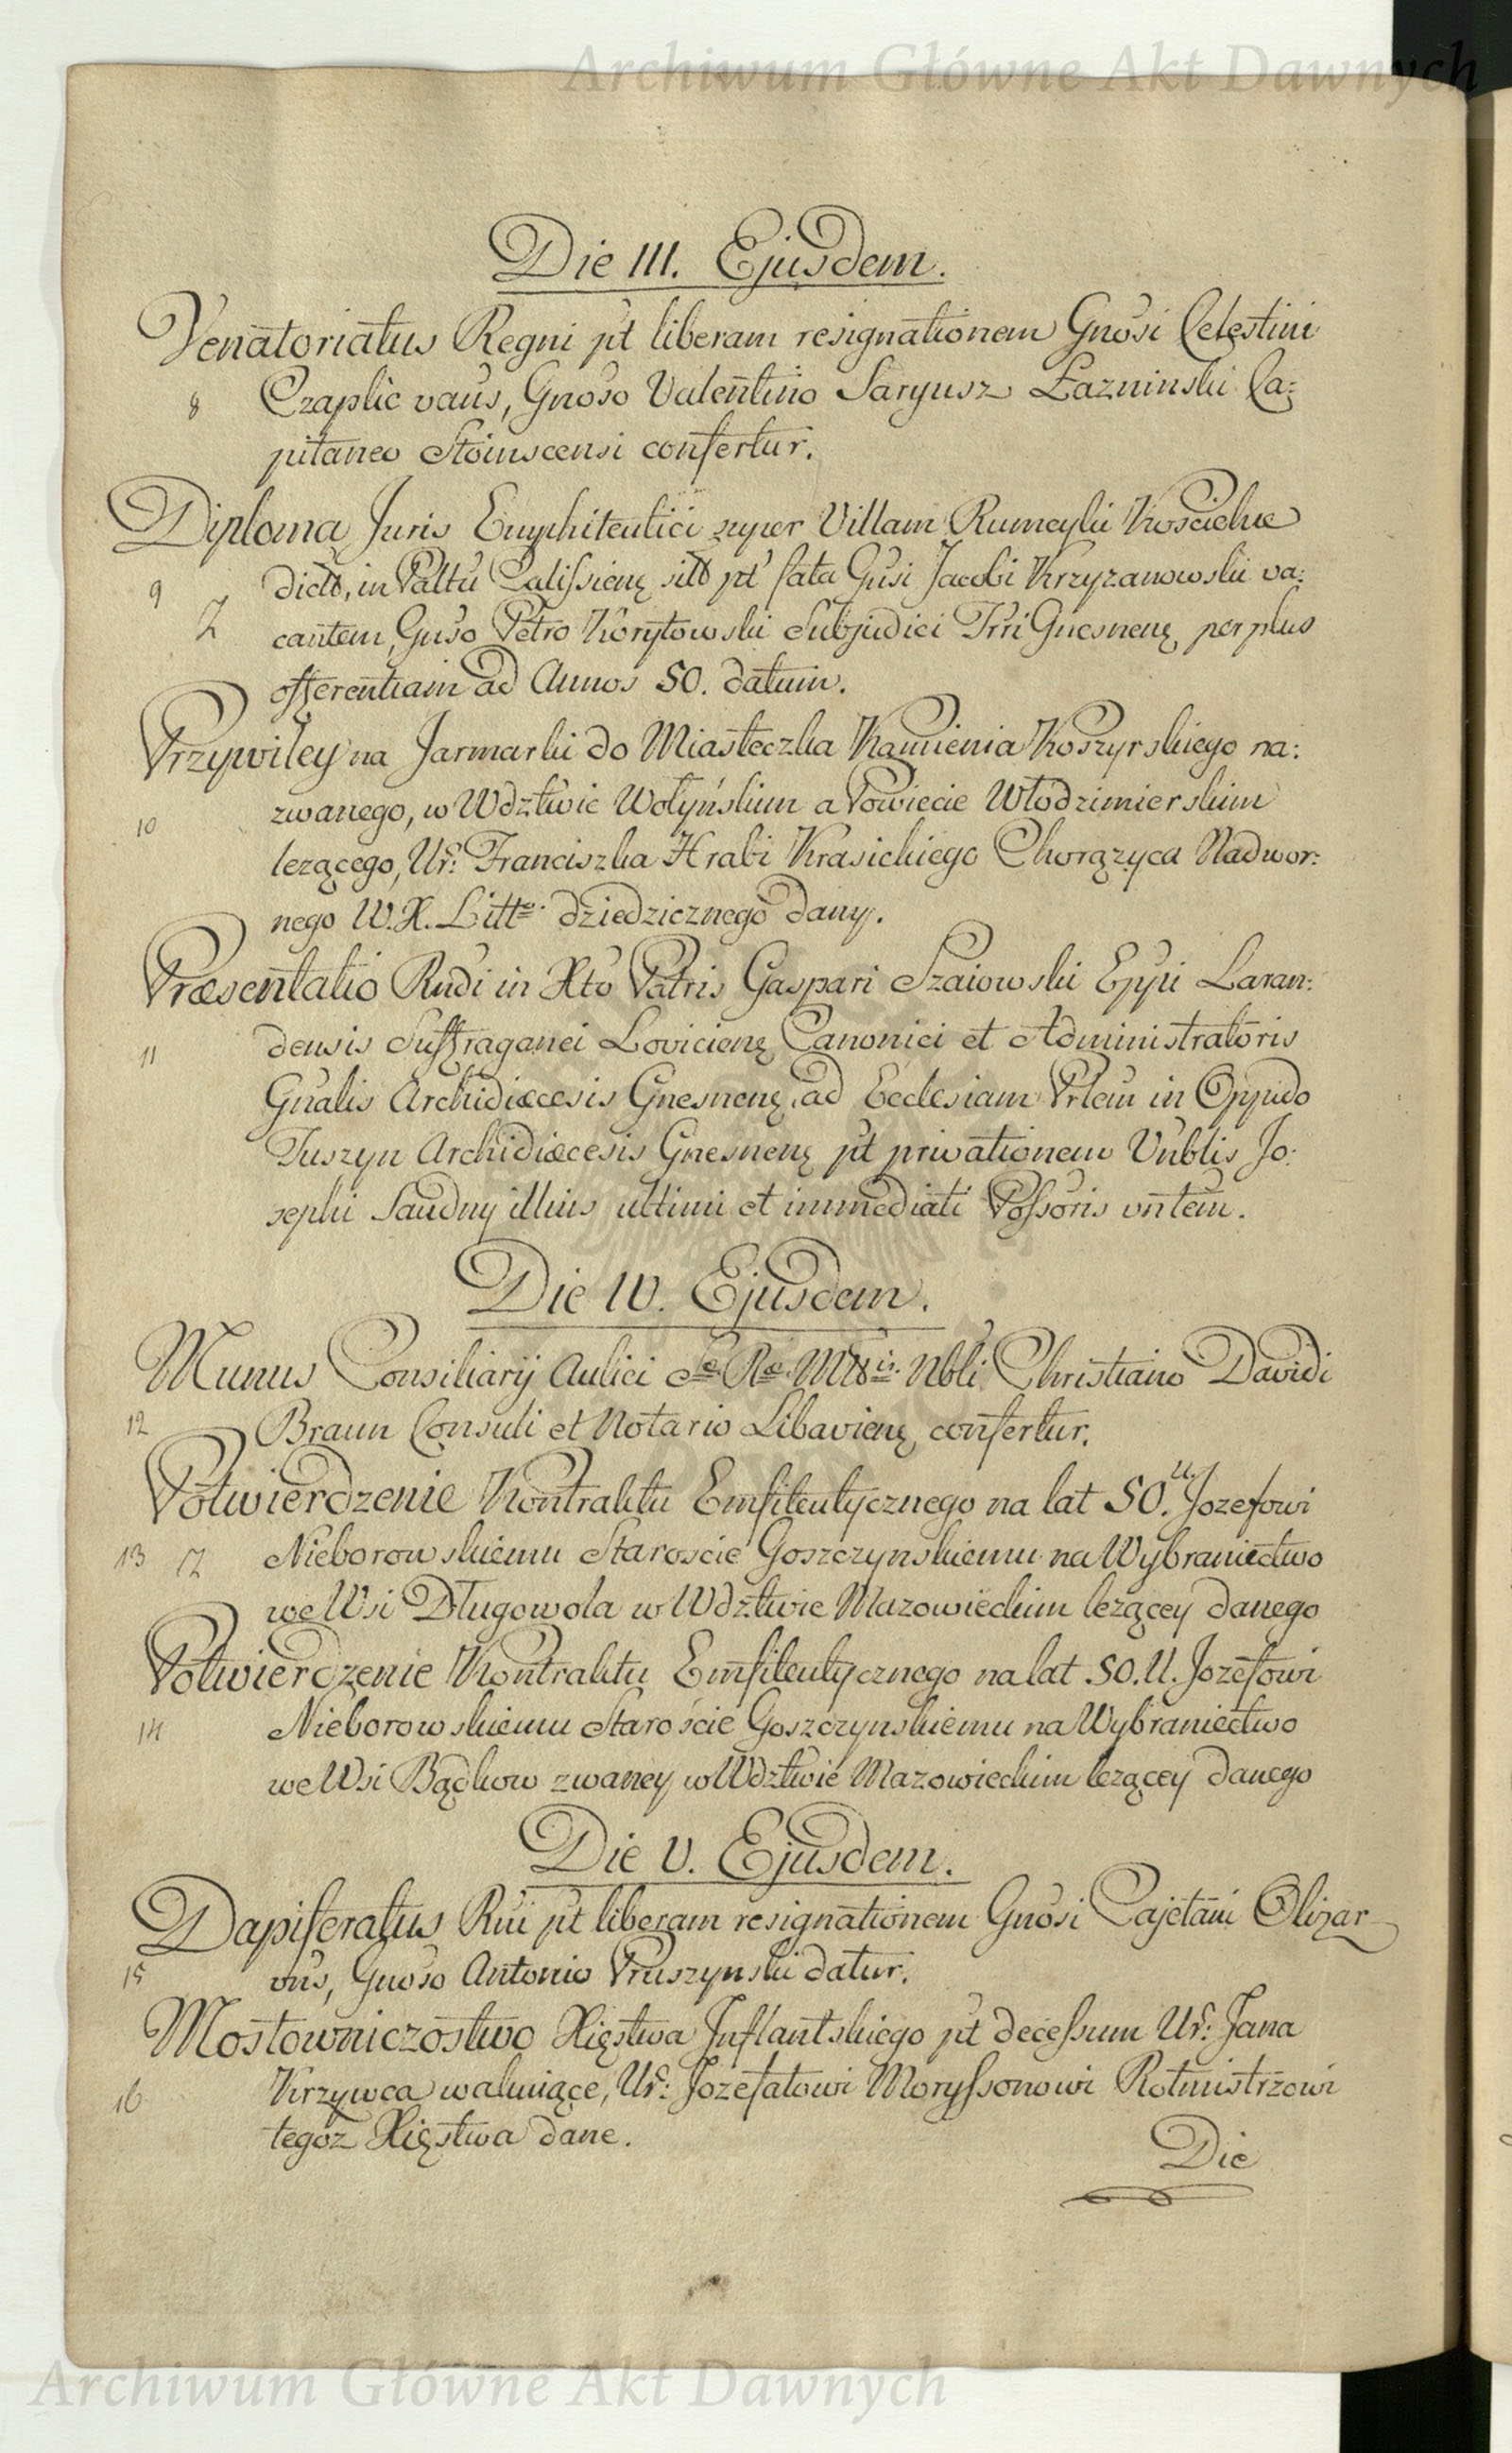 Archiwum Główne Akt Dawnych
Die III. Ejusdem.
Venatoriatus Regni pt liberam resignationem Gnosi Celestini
8 Czaplic vaus, Gnoso Valentino Saryusz Łazninski Ca:
pitaneo Stoinscensi confertur.
Diploma Juris Emphiteutici super Villam Rumeyki Koscielne
9 dictā, in Paltu Calissienę sitā pt fata Gnsi Jacobi Krzyzanowski va:
Z cantem, Gnso Petro Korytowski Subjudici Trri Gnesnenę, per plus
offerentiam ad Annos 50. datum.
Przywiley na Jarmarki do Miasteczka Kamienia Koszyrskiego na:
10 zwanego, w Wdztwie Wołyńskim a Powiecie Włodzimierskim
lezącego, Ur: Franciszka Hrabi Krasickiego Chorązyca Nadwor:
nego W. X. Litto. dziedzicznego dany.
Præsentatio Rndi in Xto Patris Gaspari Szaiowski Eppi Laran:
11 densis Suffraganei Lovicienę Canonici et Administratoris
Gnalis Archidiæcesis Gnesnenę, ad Ecclesiam Prlem in Oppido
Tuszyn Archidiæcesis Gnesnenę pt privationem Vnblis Jo:
sephi Saudny illius ultimi et immediati Possoris vntem.
Die IV. Ejusdem.
Munus Consiliarij Aulici Sæ Ræ Mttis. Nbli Christiano Davidi
12 Braun Consuli et Notario Libavienę confertur.
Potwierdzenie Kontraktu Emfiteutycznego na lat 50. U. Jozefowi
13 Z Nieborowskiemu Staroscie Goszczynskiemu na Wybraniectwo
we Wsi Długowola w Wdztwie Mazowieckim lezącey danego
Potwierdzenie Kontraktu Emfiteutycznego na lat 50. U. Jozefowi
14 Nieborowskiemu Staroście Goszczynskiemu na Wybraniectwo
we Wsi Bądkow zwaney w Wdztwie Mazowieckim lezącey danego
Die V. Ejusdem.
Dapiferatus Rni pt liberam resignationem Gnosi Cajetani Olizar
15 vns, Gnoso Antonio Pruszynski datur.
Mostowniczostwo Xięstwa Inflantskiego pt decessum Ur: Jana
16 Krzywca wakuiące, Ur: Jozefatowi Moryssonowi Rotmistrzowi
tegoz Xięstwa dane.
Die
Archiwum Główne Akt Dawnych